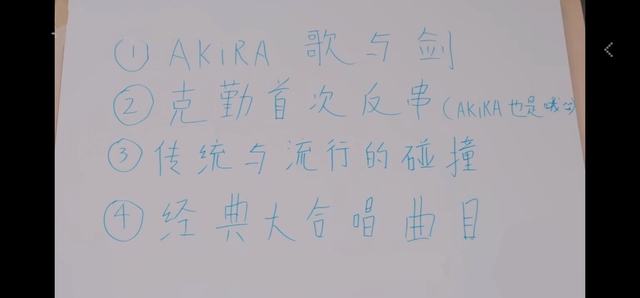 ① AKIRA 歌与剑
② 克勤首次反串(AKIRA也是哦
③ 传统与流行的碰撞
④ 经典大合唱曲目